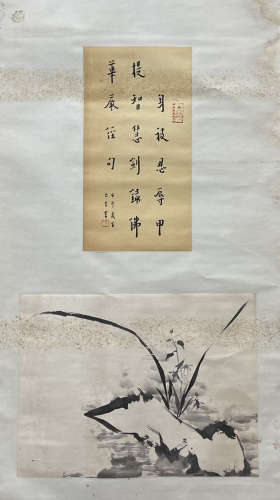 身被忍辱甲
提智慧劍錄佛
華嚴經句